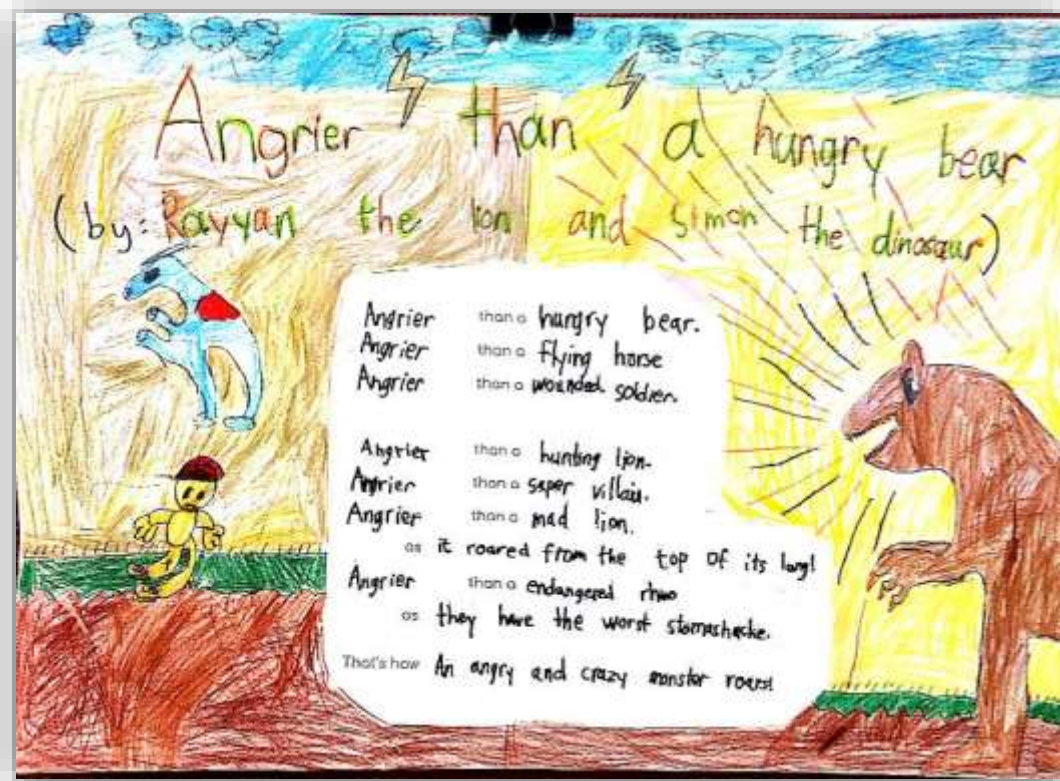 Angrier than a hungry bear
(by: Rayyan the lion and Simon the dinosaur)
Angrier than a hungry bear.
Angrier than a flying horse
Angrier than a wounded soldier.
Angrier than a hunting lion.
Angrier than a super villain.
Angrier than a mad lion.
as it roared from the top of its lung!
Angrier than a endangered rhino
as they have the worst stomashacke.
That's how An angry and crazy monster roars!